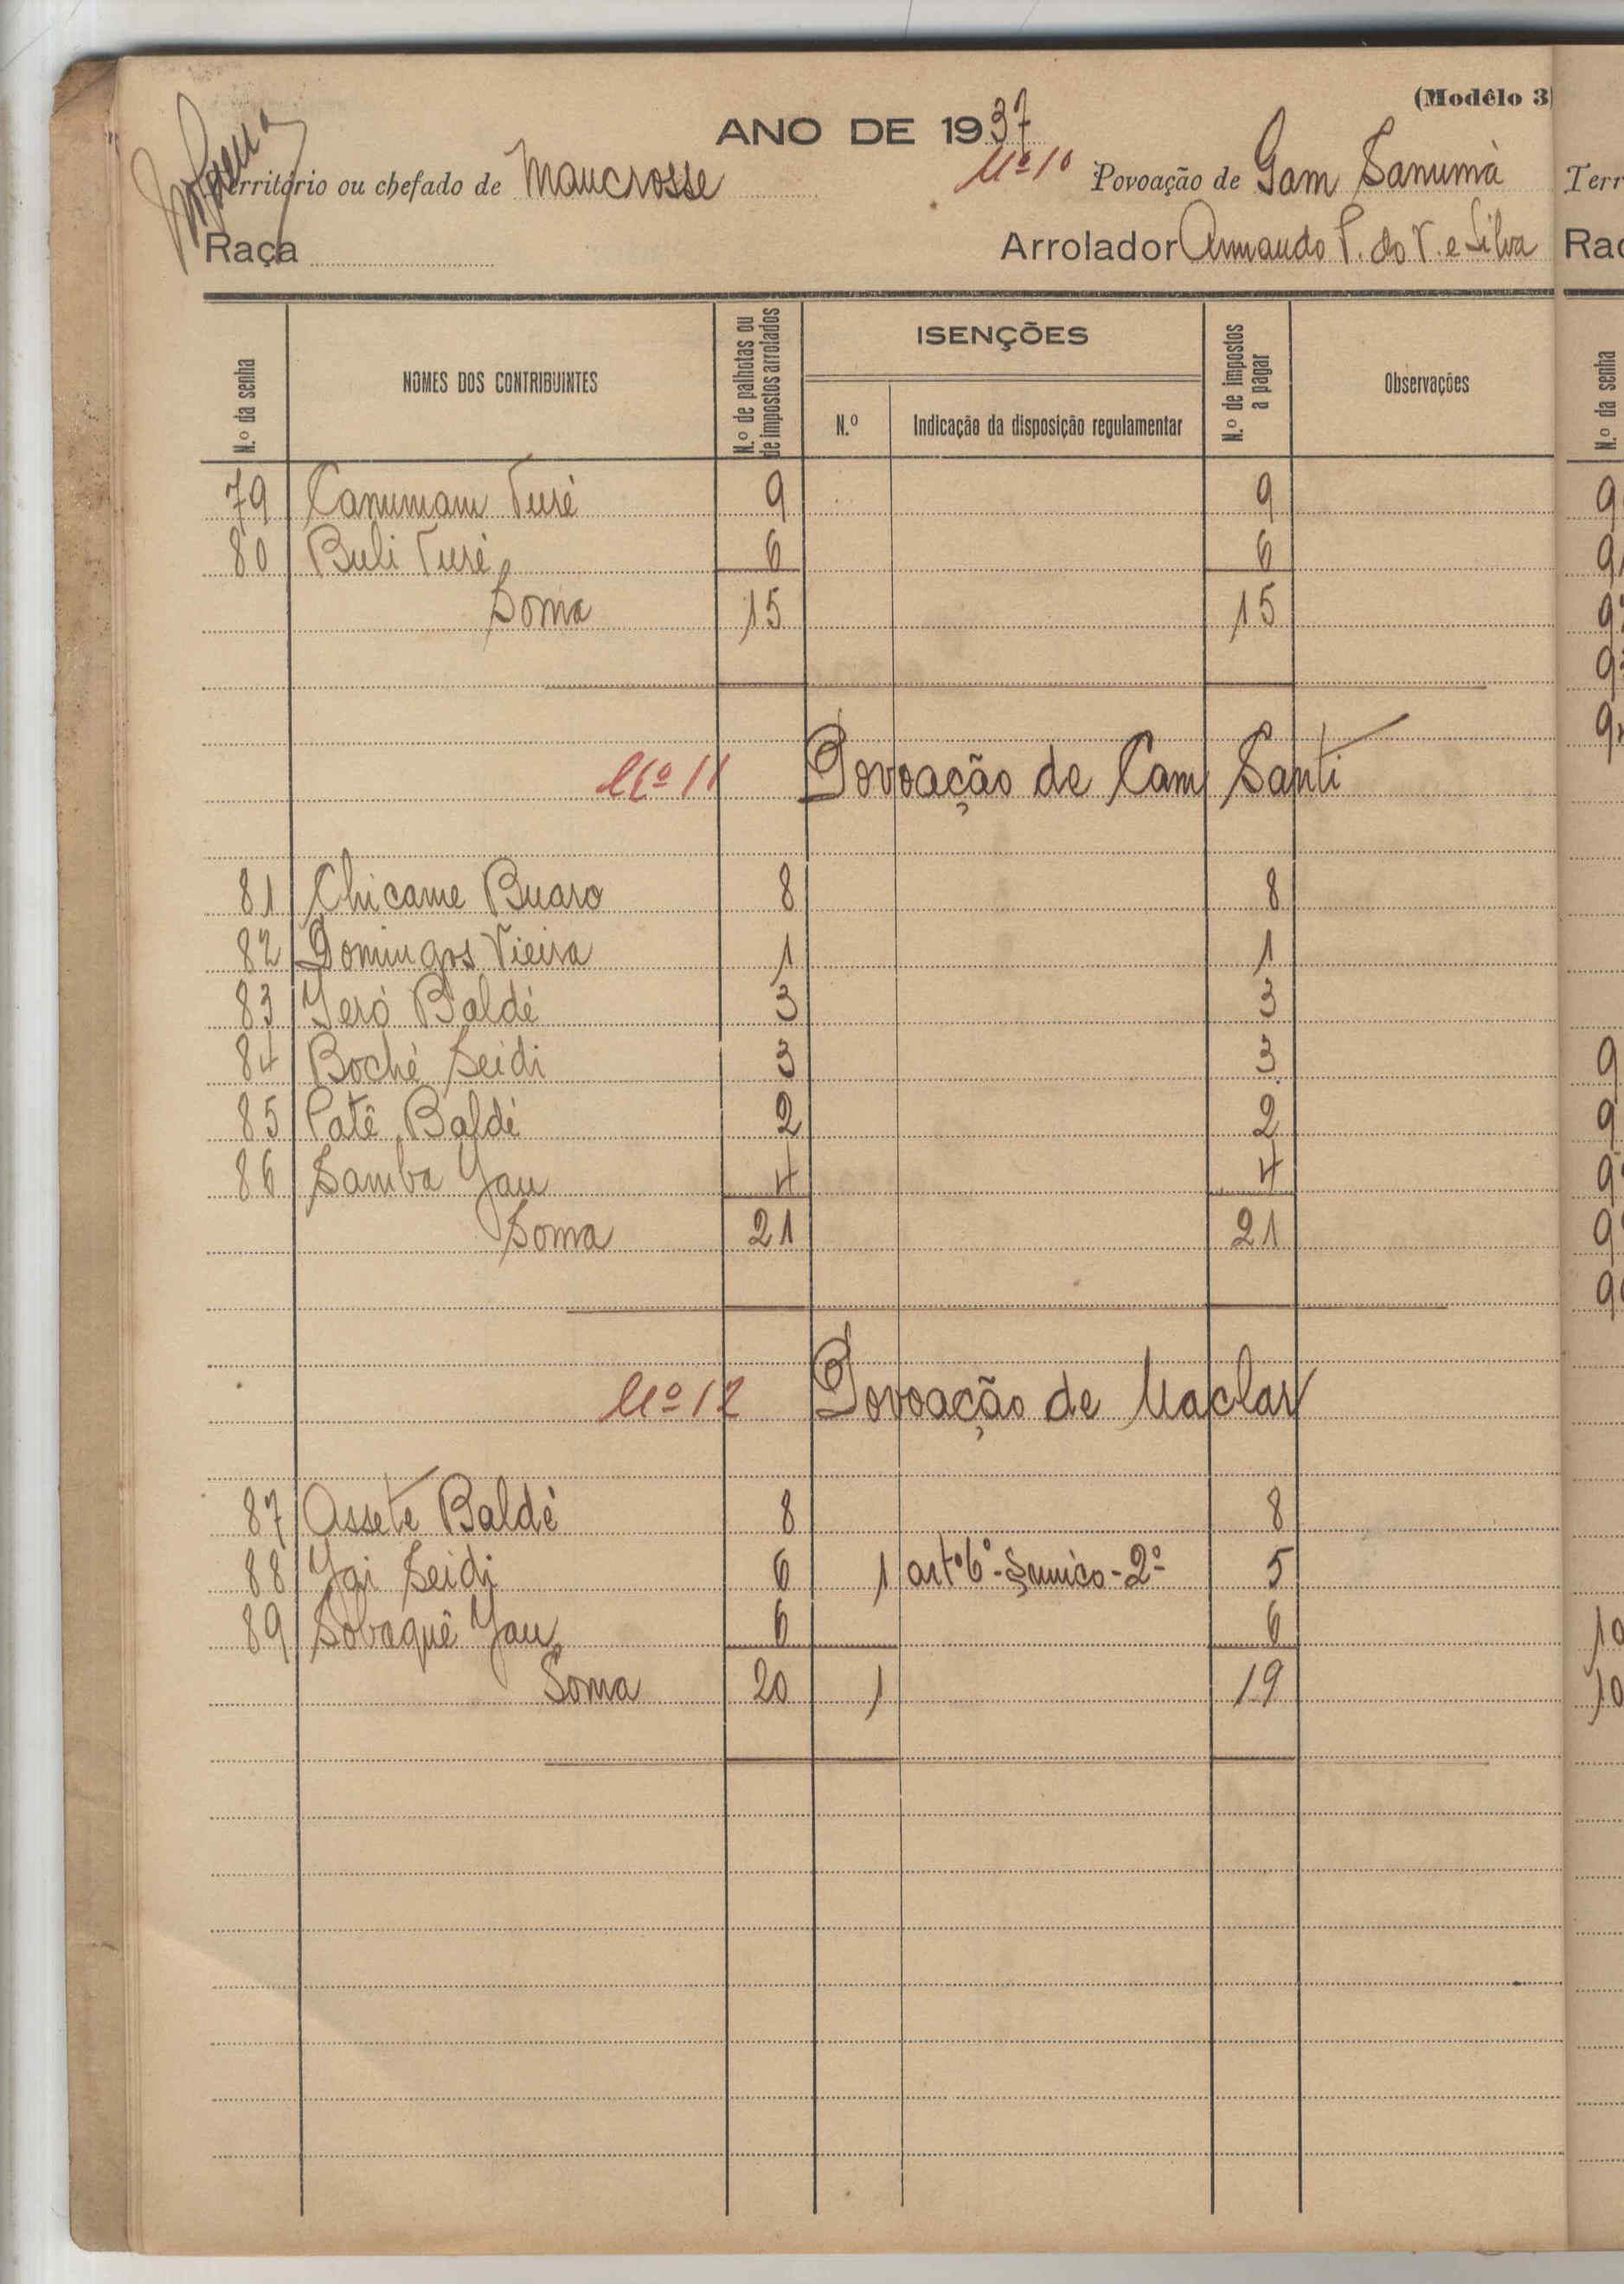 (Modêlo 3)
ANO DE 1937
Território ou chefado de Mancrosse Nº 10 Povoação de Gam Sanumá
Raça Arrolador Armando P. do V. e Silva
N.º da senha NOMES DOS CONTRIBUINTES N.º de palhotas ou de impostos arrolados ISENÇÕES N.º Indicação da disposição regulamentar N.º de impostos a pagar Observações
79 Canumam Turé 9 9
80 Buli Turé 6 6
Soma 15 15
Nº 11 Povoação de Cam Santi
81 Chicame Buaro 8 8
82 Domingos Vieira 1 1
83 Jeró Baldé 3 3
84 Boché Seidi 3 3
85 Patê Baldé 2 2
86 Samba Jau 4 4
Soma 21 21
Nº 12 Povoação de Uaclar
87 Assete Baldé 8 8
88 Jai Seidi 6 1 artº 6º - § unico - 2º 5
89 Sobaquê Jau 6 6
Soma 20 1 19